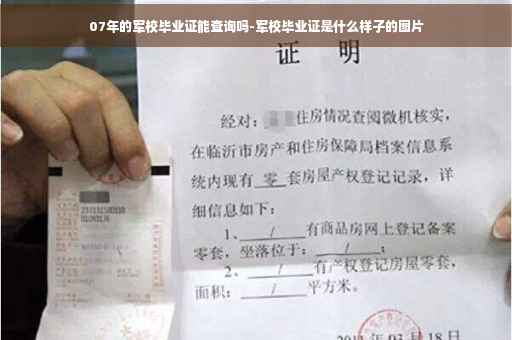 07年的军校毕业证能查询吗-军校毕业证是什么样子的图片
证 明
经对：住房情况查阅微机核实，
在临沂市房产和住房保障局档案信息系
统内现有 零 套房屋产权登记记录，详
细信息如下：
1、 / 有商品房网上登记备案
零套，坐落位于： / ；
2、 / 有产权登记房屋零套，
面积： / 平方米。
03月18日